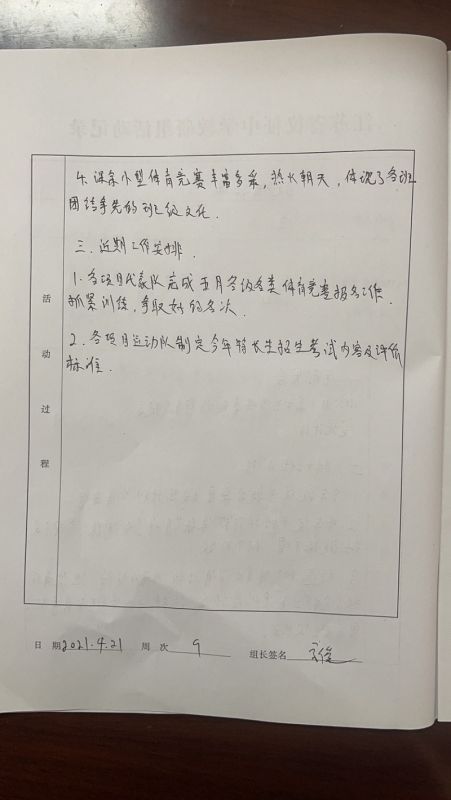 4. 课余小型体育竞赛丰富多采，热火朝天，体现了各班
团结争先的班级文化.
三. 近期工作安排.
1. 各项目代表队完成五月各级各类体育竞赛报名工作.
抓紧训练，争取好的名次.
2. 各项目运动队制定今年特长生招生考试内容及评价
标准.
活动过程
日 期 2021.4.21 周 次 9 组长签名